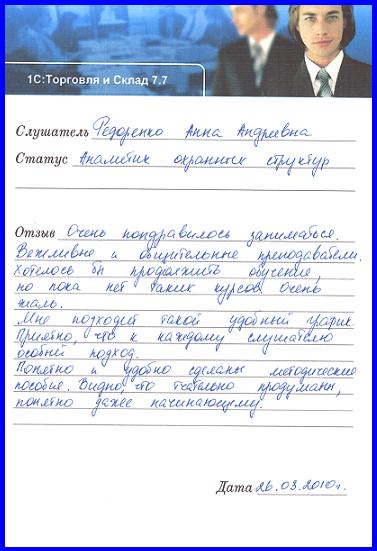 1С:Торговля и Склад 7.7
Слушатель Федоренко Анна Андреевна
Статус Аналитик охранных структур
Отзыв Очень понравилось заниматься.
Вежливые и общительные преподаватели.
Хотелось бы продолжить обучение,
но пока нет таких курсов. Очень
жаль.
Мне подходит такой удобный график.
Приятно, что к каждому слушателю
особый подход.
Понятно и удобно сделаны методические
пособие. Видно, что тчательно продуманы,
понятно даже начинающему.
Дата 26.03.2010г.